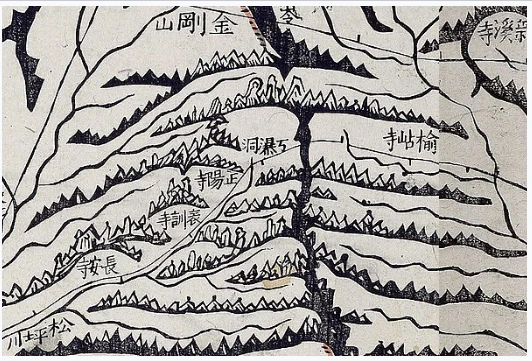 新溪寺
金剛山
楡岾寺
万瀑洞
正陽寺
表訓寺
長安寺